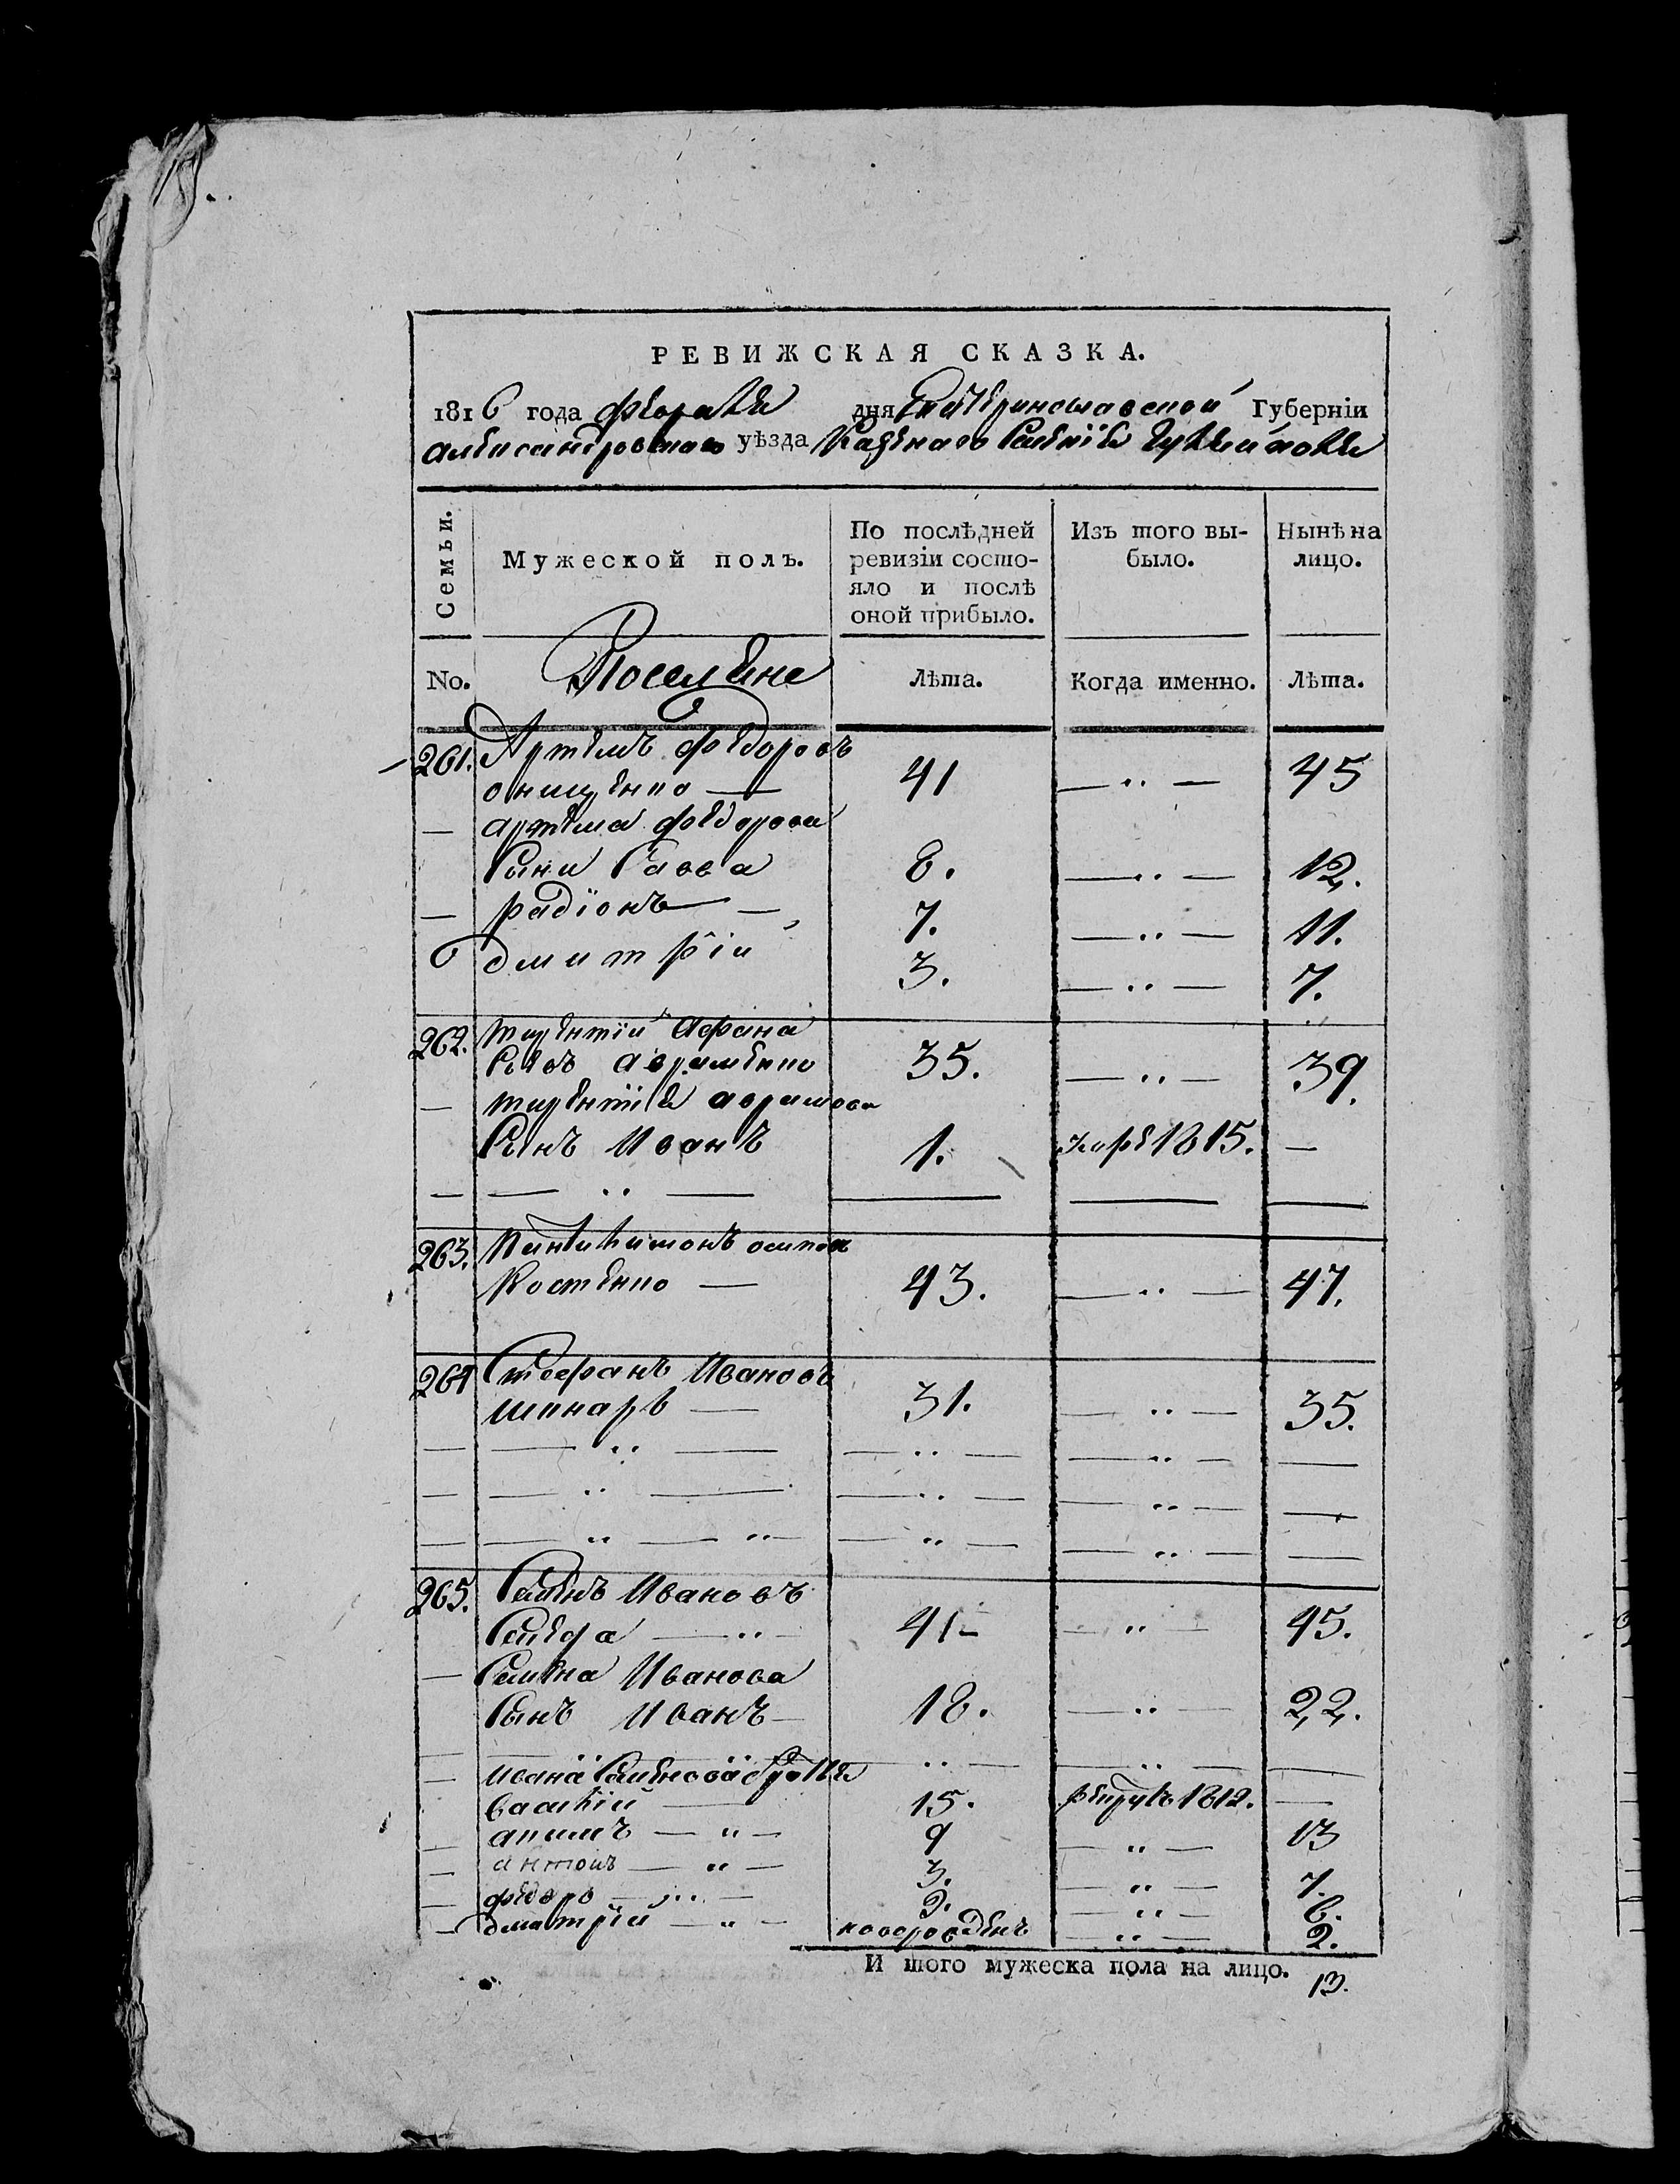 РЕВИЖСКАЯ СКАЗКА.
1816 года февраля дня Екатеринославской Губерніи
александровскаго уѣзда Казенаго Селенія Гуляйполя
Семьи.
Мужеской полъ.
По послѣдней
ревизіи состо-
яло и послѣ
оной прибыло.
Изъ того вы-
было.
Нынѣ на
лицо.
No. Поселяне Лѣта. Когда именно. Лѣта.
261. Артемъ федоровъ
онищенко — 41 — " — 45
— артема федорова
Сыни Савва 8. — " — 12.
— радіонъ — 7. — " — 11.
дмитрій 3. — " — 7.
262. терентій Афана
севъ авраменко 35. — " — 39.
— терентія аврамова
Сынъ Иванъ 1. 1815. —
— — " —
263. Пантилимонъ осипов
Костенко — 43. — " — 47.
264 Стефанъ Ивановъ
шинарь — 31. — " — 35.
— — " — — " — — " — —
— — " — — " — — " — —
— — " — " — — " — — " — —
265. Семенъ Ивановъ
— " — 41 — " — 45.
— Семена Иванова
Сынъ Иванъ — 18. — " — 22.
— ивана Семенова братья
василій — 15. рекрутъ 1812. —
— акимъ — " — 9 — " — 13
— антонъ — " — 3. — " — 7.
— федоръ — " — 2. — " — 6.
— дмитрій — " — новорожденъ — " — 2.
И того мужеска пола на лицо. 13.